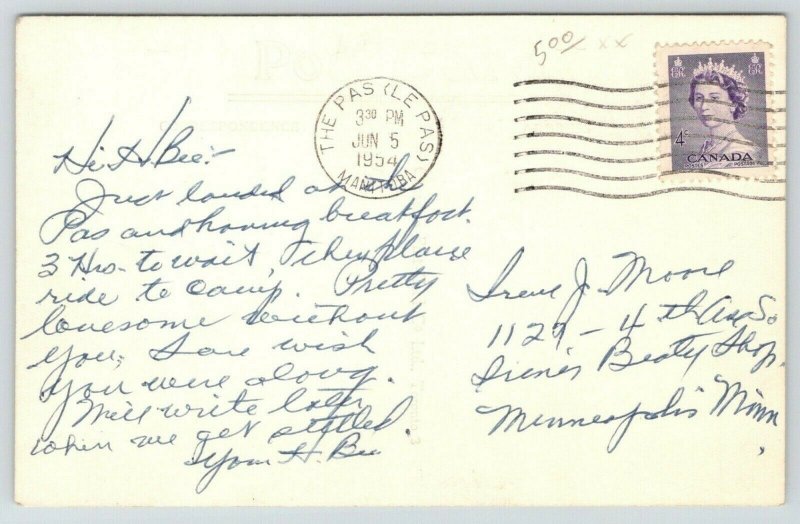 5 00/ xx
THE PAS (LE PAS)
3 30 PM
JUN 5
1954
MANITOBA
4c
CANADA
POSTES POSTAGE
CORRESPONDENCE
Hi H. Bee:-
Just landed at
Pas and having breakfast.
3 Hrs. to wait then plane
ride to camp. Pretty
lonesome without
you, Sure wish
you were along.
Will write later
when we get settled.
Your H. Bee
Irene J. Moore
1127 - 4th Ave So
Irene's Beaty Shop.
Minneapolis Minn.